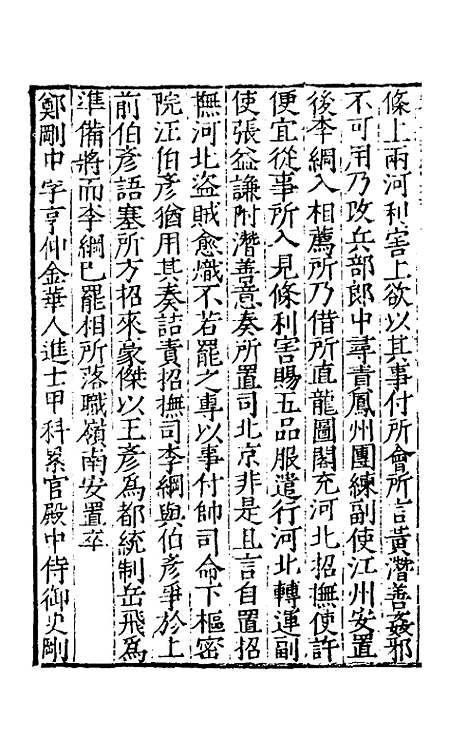 條上兩河利害上欲以其事付所會所言黃潛善姦邪
不可用乃改兵部郎中尋責鳳州團練副使江州安置
後李綱入相薦所乃借所直龍圖閣充河北招撫使許
便宜從事所入見條利害賜五品服遣行河北轉運副
使張益謙附潛善意奏所置司北京非是且言自置招
撫河北盜賊愈熾不若罷之專以事付帥司命下樞密
院汪伯彥猶用其奏詰責招撫司李綱與伯彥爭於上
前伯彥語塞所方招來豪傑以王彥為都統制岳飛為
準備將而李綱已罷相所落職嶺南安置卒
鄭剛中字亨仲金華人進士甲科累官殿中侍御史剛